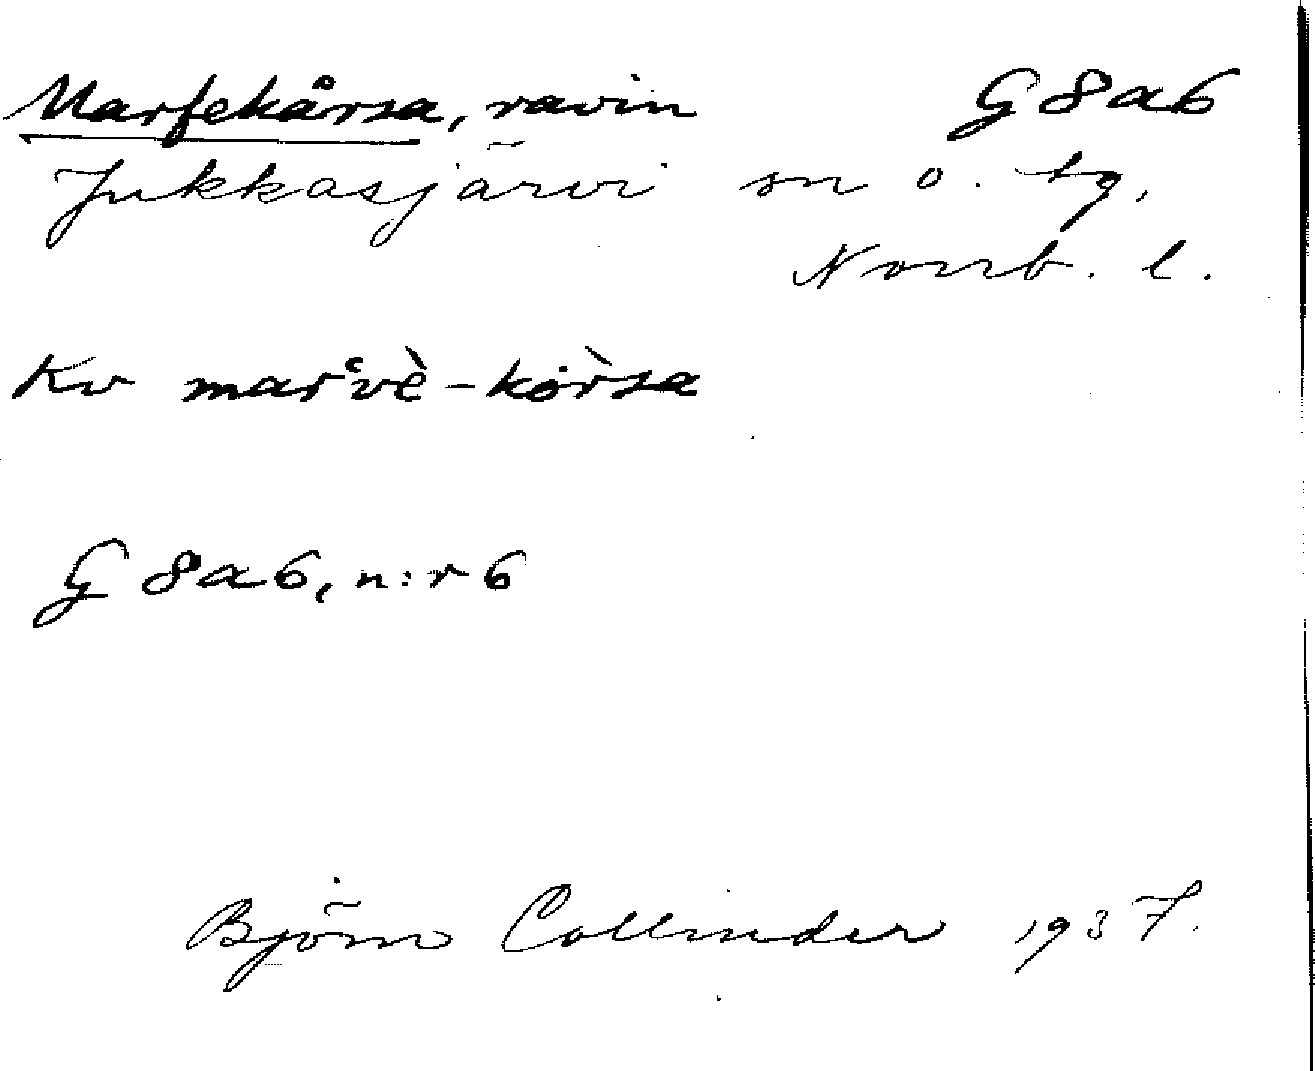 Marfekårsa, ravin G 8 a 6
Jukkasjärvi sn o. tg,
Norrb. l.
Kv marʽvè-kòrsa
G 8 a 6, n:r 6
Björn Collinder 1937.